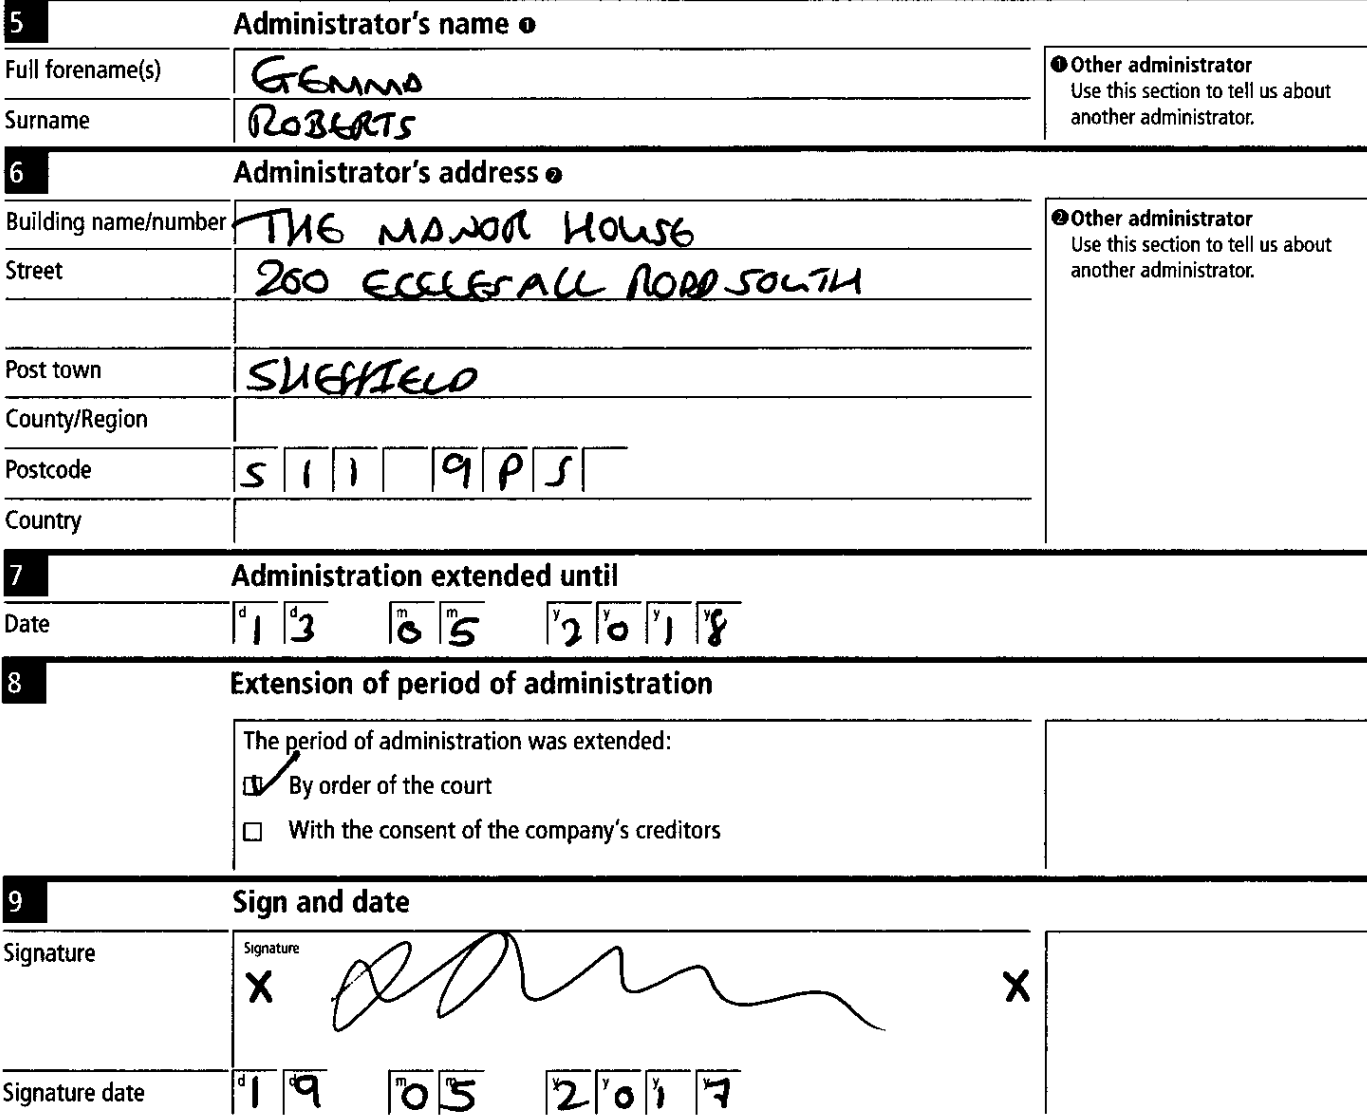 5 Administrator's name ❶
Full forename(s) GEMMA
Surname ROBERTS
❶ Other administrator
Use this section to tell us about
another administrator.
6 Administrator's address ❷
Building name/number THE MANOR HOUSE
Street 260 ECCLESALL ROAD SOUTH
Post town SHEFFIELD
County/Region
Postcode S11 9PS
Country
❷ Other administrator
Use this section to tell us about
another administrator.
7 Administration extended until
Date d1 d3 m0 m5 y2 y0 y1 y8
8 Extension of period of administration
The period of administration was extended:
☑ By order of the court
☐ With the consent of the company's creditors
9 Sign and date
Signature Signature
X X
Signature date d1 d9 m0 m5 y2 y0 y1 y7